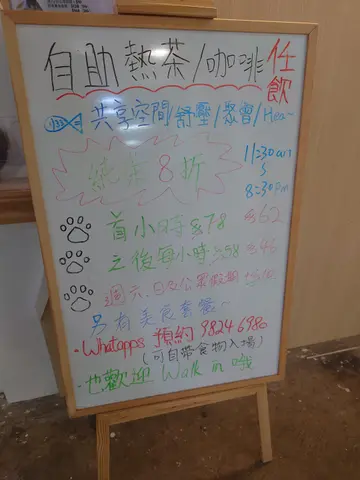 自助熱茶/咖啡任飲
共享空間/舒壓/聚會/Hea~
純茶8折
11:30am
8:30pm
首小時$78 $62
之後每小時$58 $46
週六、日及公眾假期
另有美食套餐~
·Whatapps 預約 98246980
(可自帶食物入場)
·也歡迎 Walk in 哦